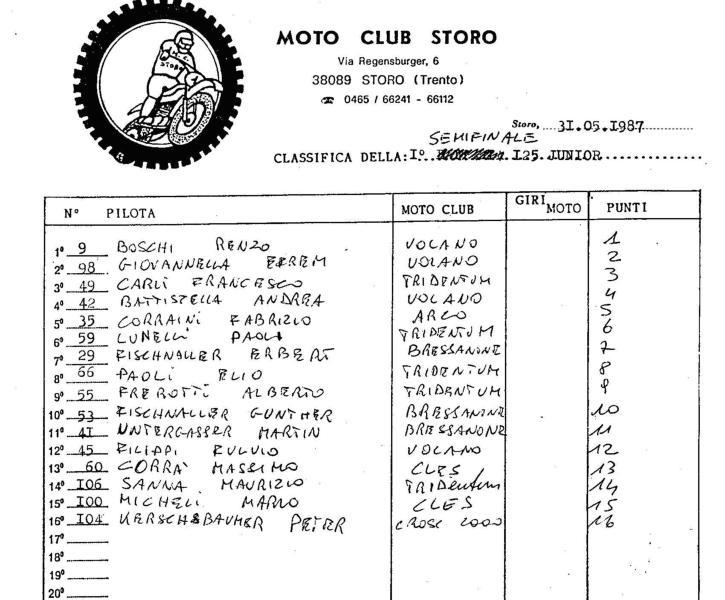 MOTO CLUB STORO
Via Regensburger, 6
38089 STORO (Trento)
☎ 0465 / 66241 - 66112
M.C.
STORO
Storo, 31.05.I987
SEMIFINALE
CLASSIFICA DELLA: I° I25 JUNIOR
N° PILOTA MOTO CLUB GIRI MOTO PUNTI
1° 9 BOSCHI RENZO VOLANO 1
2° 98 GIOVANNELLA EFREM VOLANO 2
3° 49 CARLI FRANCESCO TRIDENTUM 3
4° 42 BATTISTELLA ANDREA VOLANO 4
5° 35 CORRAINI FABRIZIO ARCO 5
6° 59 LUNELLI PAOLI TRIDENTUM 6
7° 29 FISCHNALLER ERBERT BRESSANONE 7
8° 66 PAOLI ELIO TRIDENTUM 8
9° 55 FREROTTI ALBERTO TRIDENTUM 9
10° 53 FISCHNALLER GUNTHER BRESSANONE 10
11° 4I UNTERGASSER MARTIN BRESSANONE 11
12° 45 FILIPPI FULVIO VOLANO 12
13° 60 CORRA' MASSIMO CLES 13
14° I06 SANNA MAURIZIO TRIDENTUM 14
15° I00 MICHELI MARIO CLES 15
16° I04 KERSCHBAUMER PETER CROSS 2000 16
17°
18°
19°
20°